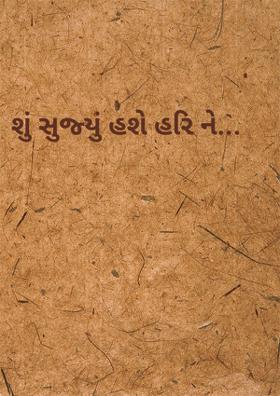 શું સુજ્યું હશે હરિ ને...